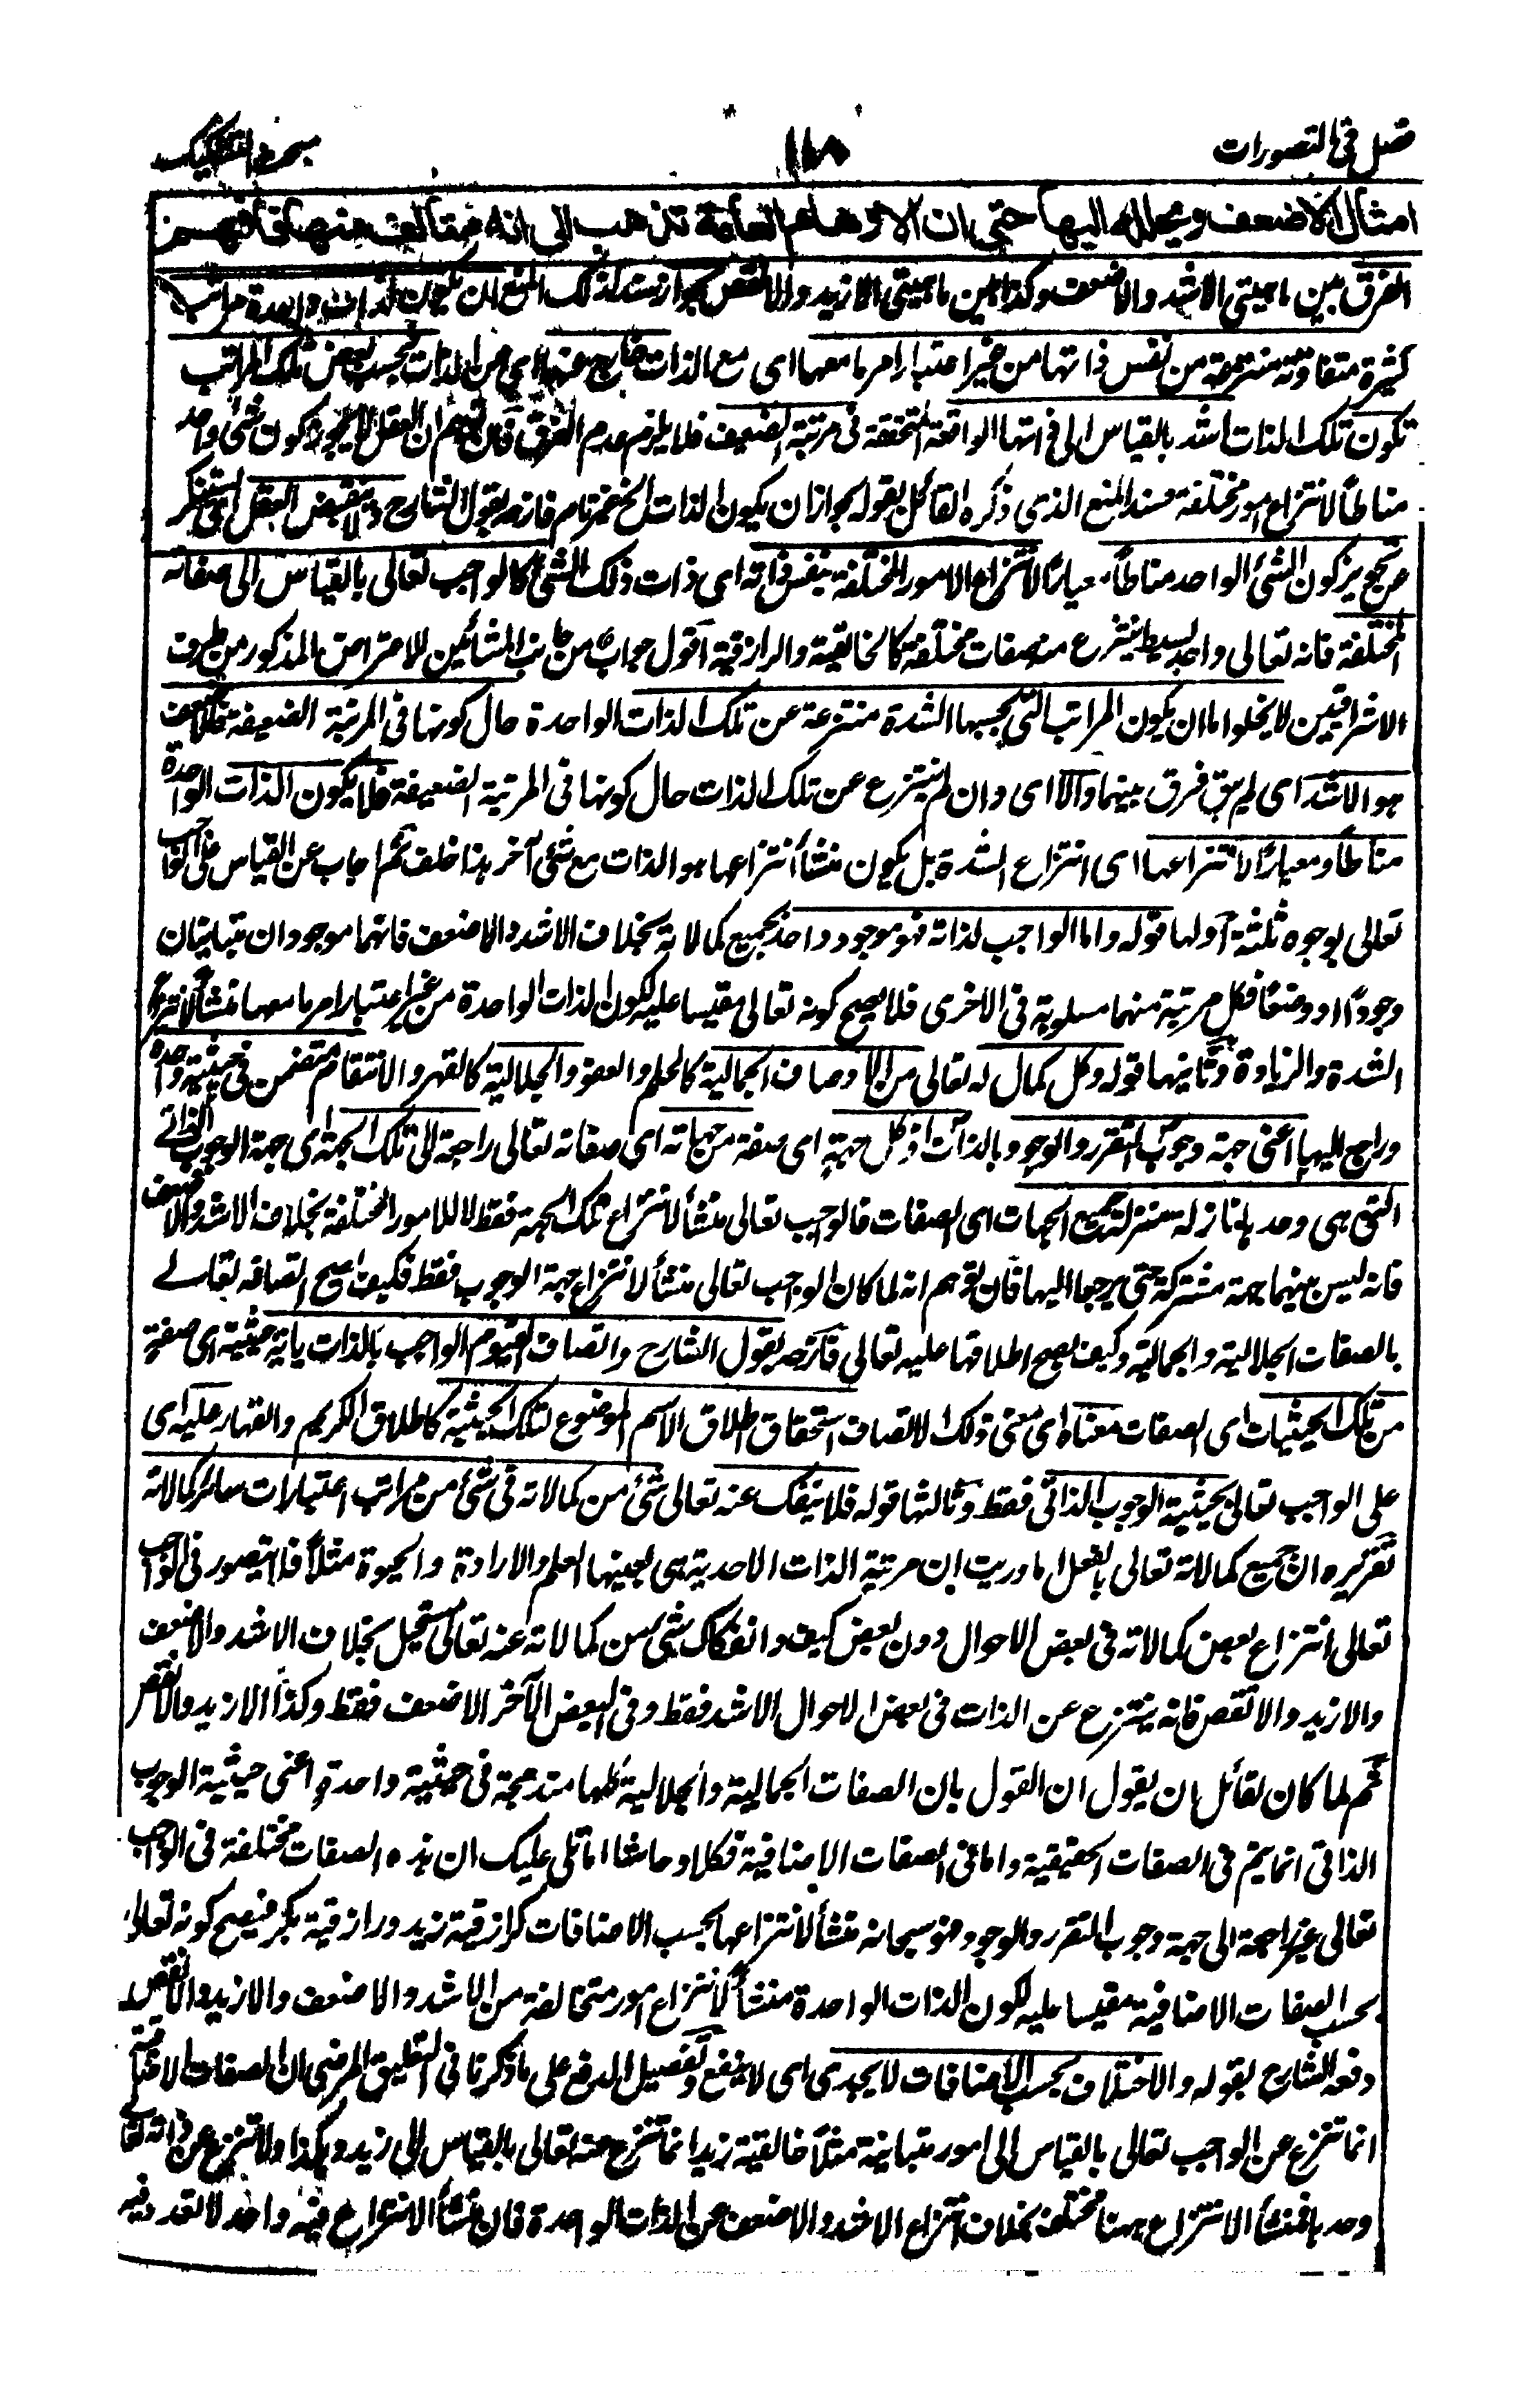 فصل فی التصورات
۱۱۸
مبحث التشکیک
امثال الاضعف ویحلله الیها حتی ان الاوهام العامة تذهب الی انه متألف منها فافهم
الفرق بین ماهیتی الاشد والاضعف وکذا بین ماهیتی الازید والانقص بجواز سند لذلک المنع ان یکون لذات واحدة مراتب
کثیرة متفاوتة منتزعة من نفس ذاتها من غیر اعتبار امر ما معها ای مع الذات خارج عنها ای عن الذات بحسب بعض تلک المراتب
تکون تلک الذات اشد بالقیاس الی ذاتها الواقعة المتحققة فی مرتبة الضعیف فلا یلزم عدم الفرق فان توهم ان العقل لا یجوز کون شئ واحد
مناطاً لانتزاع امور مختلفة فسند المنع الذی ذکره القائل بقوله بجواز ان یکون الذات الخ غیر تام فازحه بقول الشارح ولا ینقبض العقل ای یستنکر
عن تجویز کون الشئ الواحد مناطاً معیاراً لانتزاع الامور المختلفة بنفس ذاته ای ذات ذلک الشئ کالواجب تعالی بالقیاس الی صفاته
المختلفة فانه تعالی واحد بسیط ینتزع منه صفات مختلفة کالخالقیة والرازقیة اقول جواب من جانب المشائین للاعتراض المذکور من طرف
الاشراقیین لا یخلوا اما ان یکون المراتب التی بحسبها الشدة منتزعة عن تلک الذات الواحدة حال کونها فی المرتبة الضعیفة فالاضعف
هو الاشد ای لم یبق فرق بینهما والا ای وان لم ینتزع عن تلک الذات حال کونها فی المرتبة الضعیفة فلا یکون الذات الواحدة
مناطاً ومعیاراً لانتزاعها ای انتزاع الشدة بل یکون منشأ انتزاعها هو الذات مع شئ آخر هذا خلف ثم اجاب عن القیاس علی الواجب
تعالی بوجوه ثلثة اولها قوله واما الواجب لذاته فهو موجود واحد بجمیع کمالاته بخلاف الاشد والاضعف فانهما موجودان متباینان
وجوداً او وضعاً فکل مرتبة منهما مسلوبة فی الاخری فلا یصح کونه تعالی مقیسا علیه لکون الذات الواحدة من غیر اعتبار امر ما معها منشأ لانتزاع
الشدة والزیادة وثانیها قوله وکل کمال له تعالی من الاوصاف الجمالیة کالحلم والعفو والجلالیة کالقهر والانتقام متضمن فی حیثیة واحدة
وراجع الیها اعنی جهة وجوب التقرر والوجود بالذات اذ کل جهة ای صفة من جهاته ای صفاته تعالی راجعة الی تلک الجهة ای جهة الوجوب الذاتی
التی هی وحدها نازلة منزلة جمیع الجهات ای الصفات فالواجب تعالی منشأ لانتزاع تلک الجهة فقط لا للامور المختلفة بخلاف الاشد والاضعف
فانه لیس بینهما جهة مشترکة حتی یرجعا الیها فان توهم انه لما کان الواجب تعالی منشأ لانتزاع جهة الوجوب فقط فکیف یصح اتصافه تعالے
بالصفات الجلالیة والجمالیة وکیف یصح اطلاقها علیه تعالی فازحه بقول الشارح واتصاف القیوم الواجب بالذات بایة حیثیة ای صفة
من تلک الحیثیات ای الصفات معناه ای معنی ذلک الاتصاف استحقاق اطلاق الاسم الموضوع لتلک الحیثیة کاطلاق الکریم والقهار علیه ای
علی الواجب تعالی بحیثیة الوجوب الذاتی فقط وثالثها قوله فلا ینفک عنه تعالی شئ من کمالاته فی شئ من مراتب اعتبارات سائر کمالاته
تقریره ان جمیع کمالاته تعالی بالفعل لما دریت ان مرتبة الذات الاحدیة هی بعینها العلم والارادة والحیوة مثلاً فلا یتصور فی الواجب
تعالی انتزاع بعض کمالاته فی بعض الاحوال دون بعض کیف وانفکاک شئ من کمالاته عنه تعالی مستحیل بخلاف الاشد والاضعف
والازید والانقص فانه ینتزع عن الذات فی بعض الاحوال الاشد فقط وفی البعض الآخر الاضعف فقط وکذا الازید والانقص
ثم لما کان لقائل ان یقول ان القول بان الصفات الجمالیة والجلالیة کلها مندمجة فی حیثیة واحدة اعنی حیثیة الوجوب
الذاتی انما یتم فی الصفات الحقیقیة واما فی الصفات الاضافیة فکلا وحاشا اما تلی علیک ان هذه الصفات مختلفة فی الواجب
تعالی غیر راجعة الی جهة وجوب التقرر والوجود فهو سبحانه منشأ لانتزاعها بحسب الاضافات کرازقیة زید ورازقیة بکر فیصح کونه تعالی
بحسب الصفات الاضافیة مقیسا علیه لکون الذات الواحدة منشأ لانتزاع امور متخالفة من الاشد والاضعف والازید والانقص
دفعه الشارح بقوله والاختلاف بحسب الاضافات لا یجدی ای لا ینفع وتفصیل الدفع علی ما ذکرنا فی التعلیق المرضی ان الصفات الاضافیة
انما تنتزع عن الواجب تعالی بالقیاس الی امور متباینة مثلاً خالقیة زید انما تنتزع عنه تعالی بالقیاس الی زید وهکذا ولا تنتزع عن ذاته تعالی
وحدها فمنشأ الانتزاع ههنا مختلف بخلاف انتزاع الاشد والاضعف عن الذات الواحدة فان منشأ الانتزاع فیه واحد لا تعدد فیه